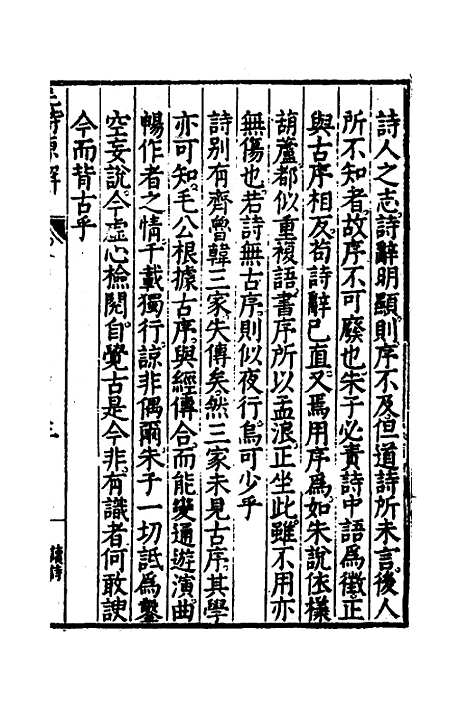 詩人之志詩辭明顯則序不及但道詩所未言後人
所不知者故序不可廢也朱子必責詩中語爲徵正
與古序相反苟詩辭已直又焉用序爲如朱說依樣
葫蘆都似重複語書序所以孟浪正坐此雖不用亦
無傷也若詩無古序則似夜行烏可少乎
詩別有齊魯韓三家失傳矣然三家未見古序其學
亦可知毛公根據古序與經傳合而能變通遊演曲
暢作者之情千載獨行諒非偶爾朱子一切詆爲鑿
空妄說今虛心檢閱自覺古是今非有識者何敢諛
今而背古乎
毛詩原解
讀詩